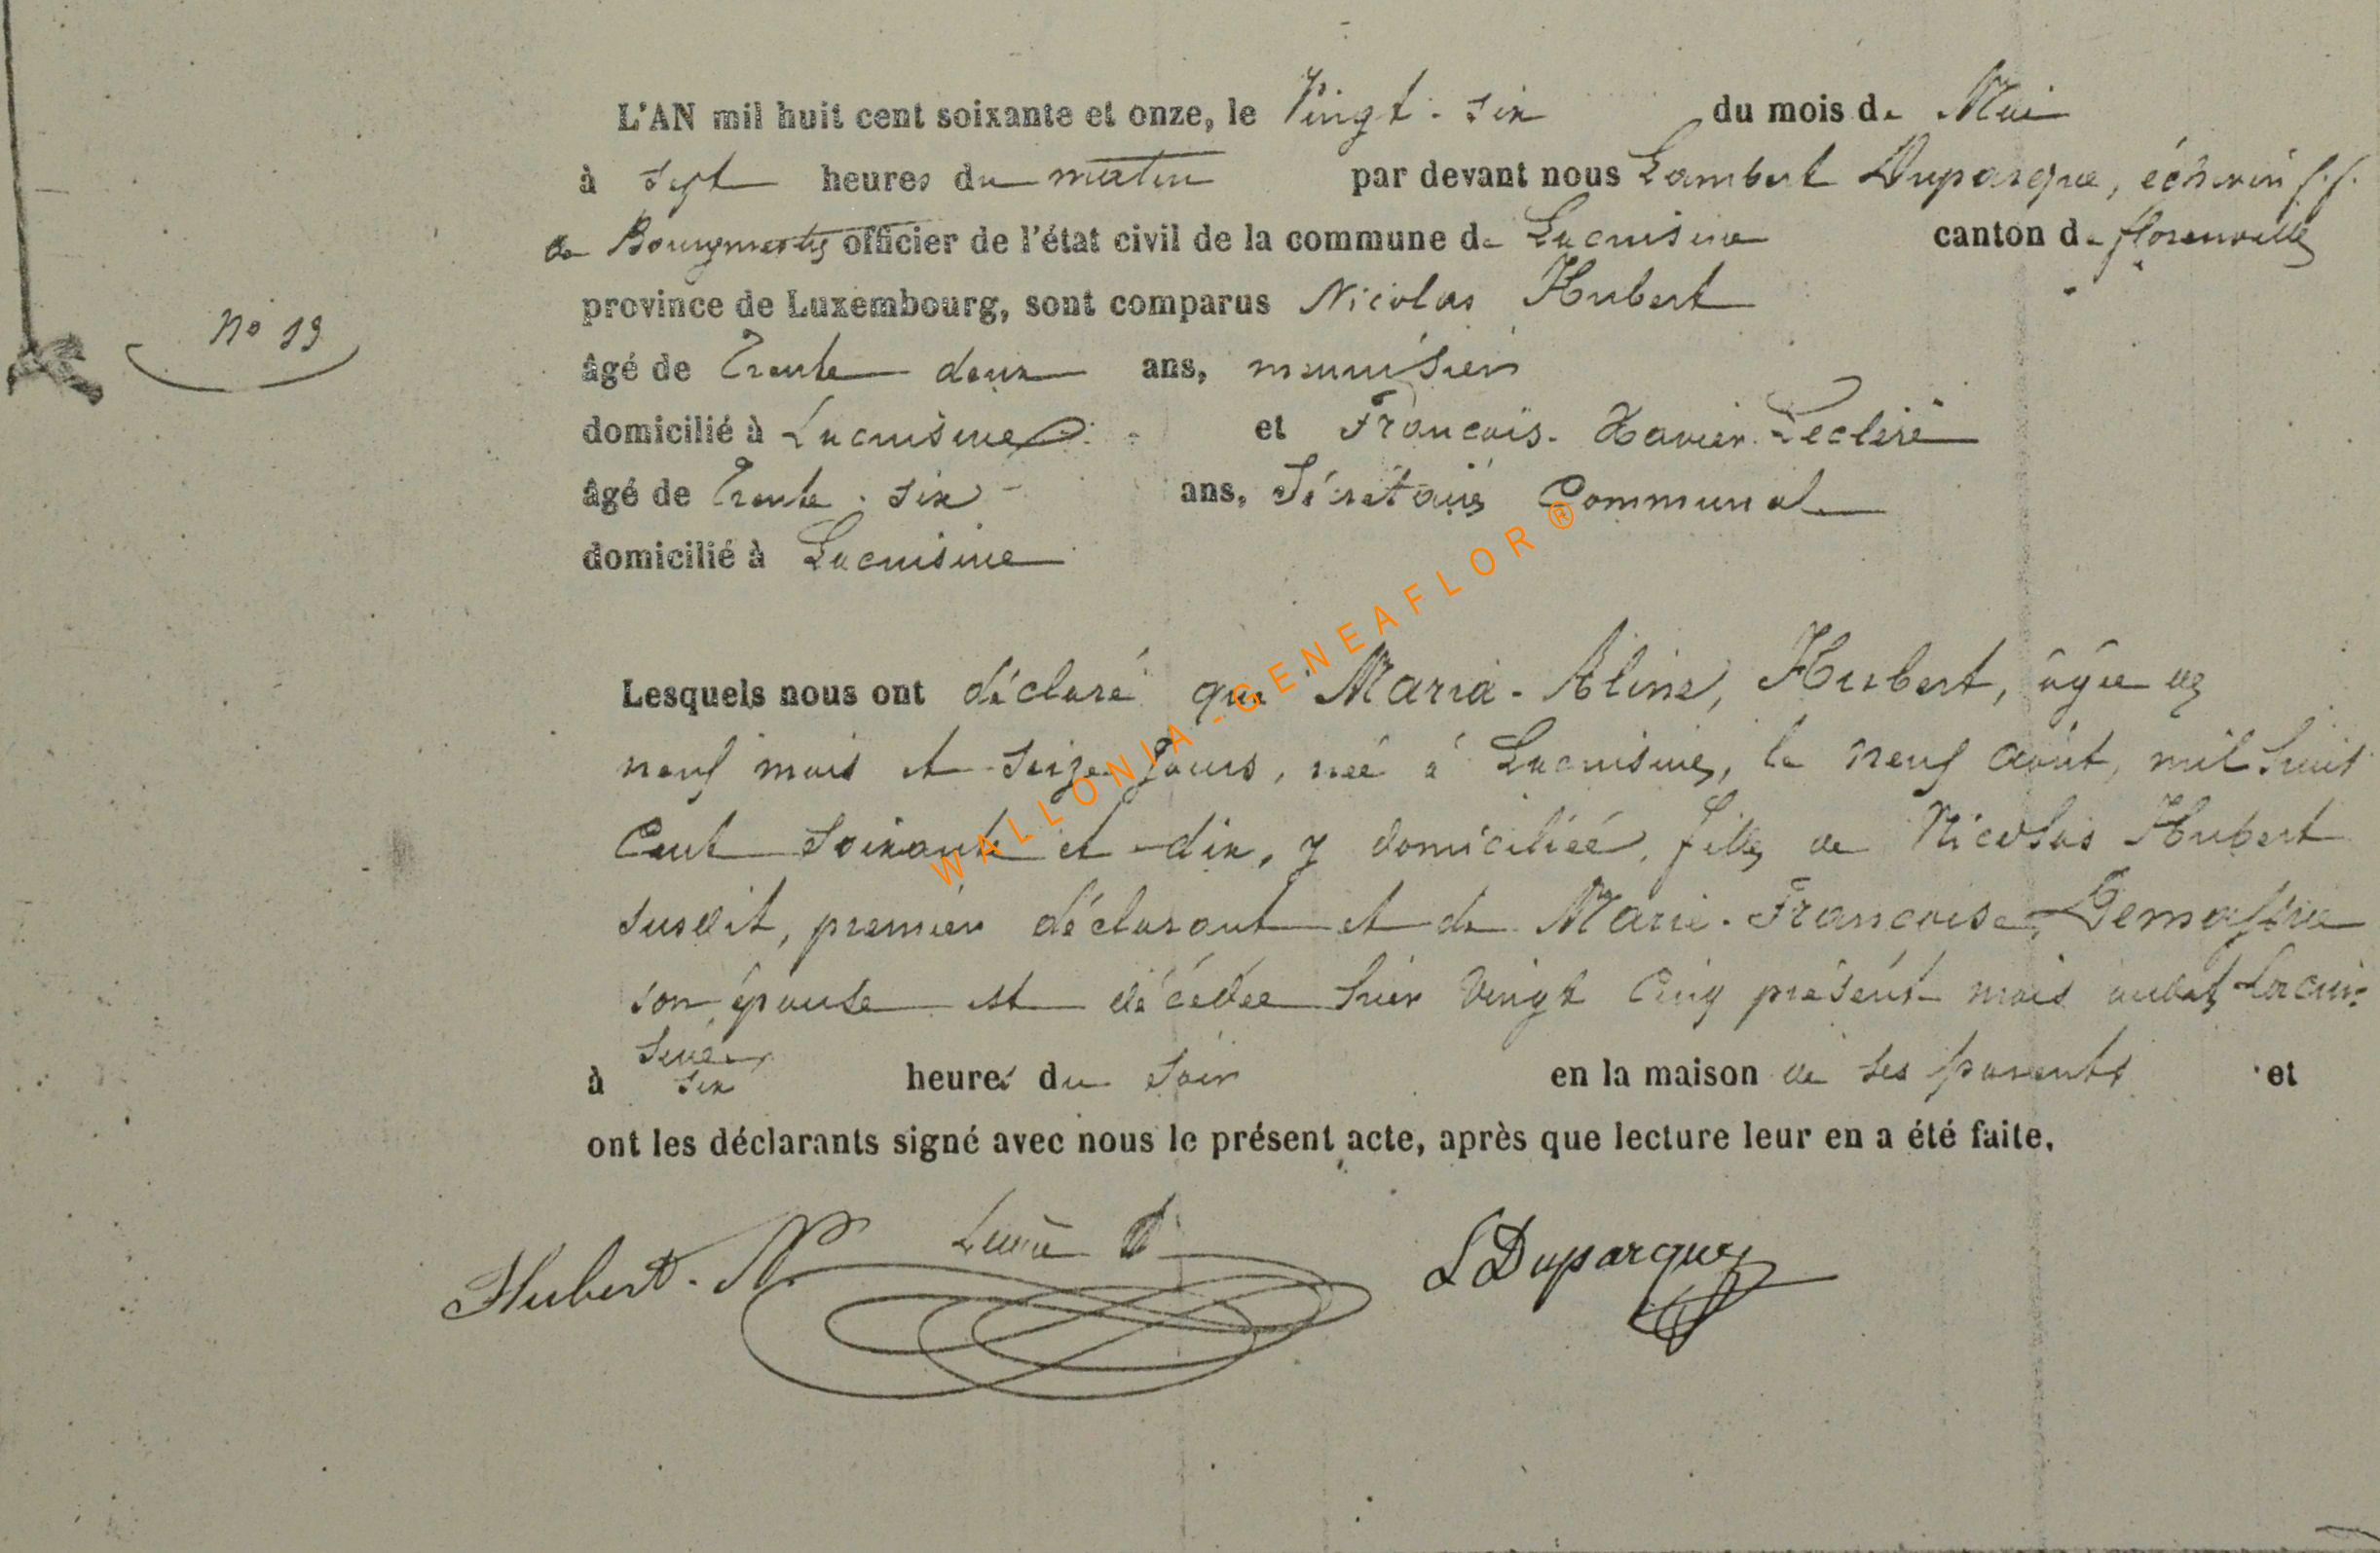 L'AN mil huit cent soixante et onze, le Vingt-six du mois de Mai
à Sept heures du matin par devant nous Lambert Duparque, échevin f.f.
de Bourgmestre officier de l'état civil de la commune de Lacuisine canton de florenville
province de Luxembourg, sont comparus Nicolas Hubert
N° 19
âgé de Trente deux ans, menuisier
domicilié à Lacuisine et Francois-Xavier
âgé de Trente-six ans, Sécrétaire Communal
domicilié à Lacuisine
Lesquels nous ont déclaré que Maria-Aline, Hubert, âgée de
neuf mois et seize jours, née à Lacuisine, le neuf août, mil huit
Cent soixante et dix, y domiciliée, fille de Nicolas Hubert
susdit, premier déclarant et de Marie-Francoise
son épouse est décédée hier vingt cinq présent mois audit Lacui-
sine
à six heures du soir en la maison de ses parents et
ont les déclarants signé avec nous le présent acte, après que lecture leur en a été faite.
Hubert. N. L Duparque
WALLONIA-GENEAFLOR ®